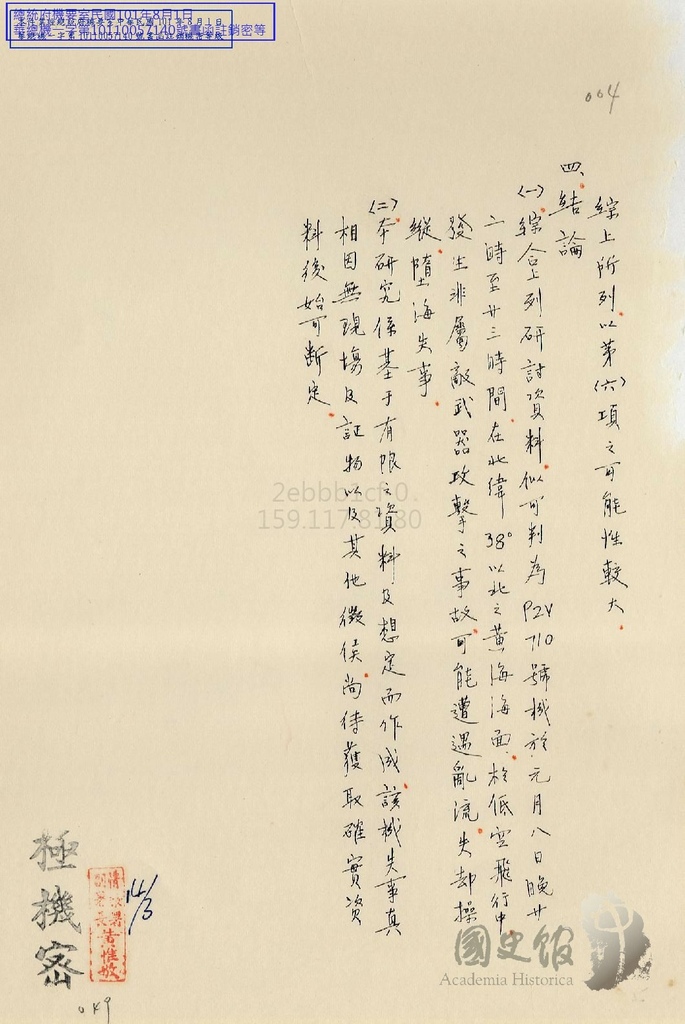 總統府機要室民國101年8月1日
華總機一字第10110057140號書函註銷密等
004
綜上所列以第(六)項之可能性較大.
四、結論
(一)綜合上列研討資料似可判為P2V 710號機於元月八日晚廿
二時至廿三時間在北緯38°以北之黃海海面於低空飛行中
發生非屬敵武器攻擊之事故可能遭遇亂流失却操
縱墮海失事
(二)本研究係基于有限之資料及想定而作成該機失事真
相因無現場及証物以及其他徵候尚待獲取確實資
料後始可斷定
極機密
情次署
副署長黃惟敬
14/3
049
2ebbb1cf.0.
159.117.81.80
國史館
Academia Historica